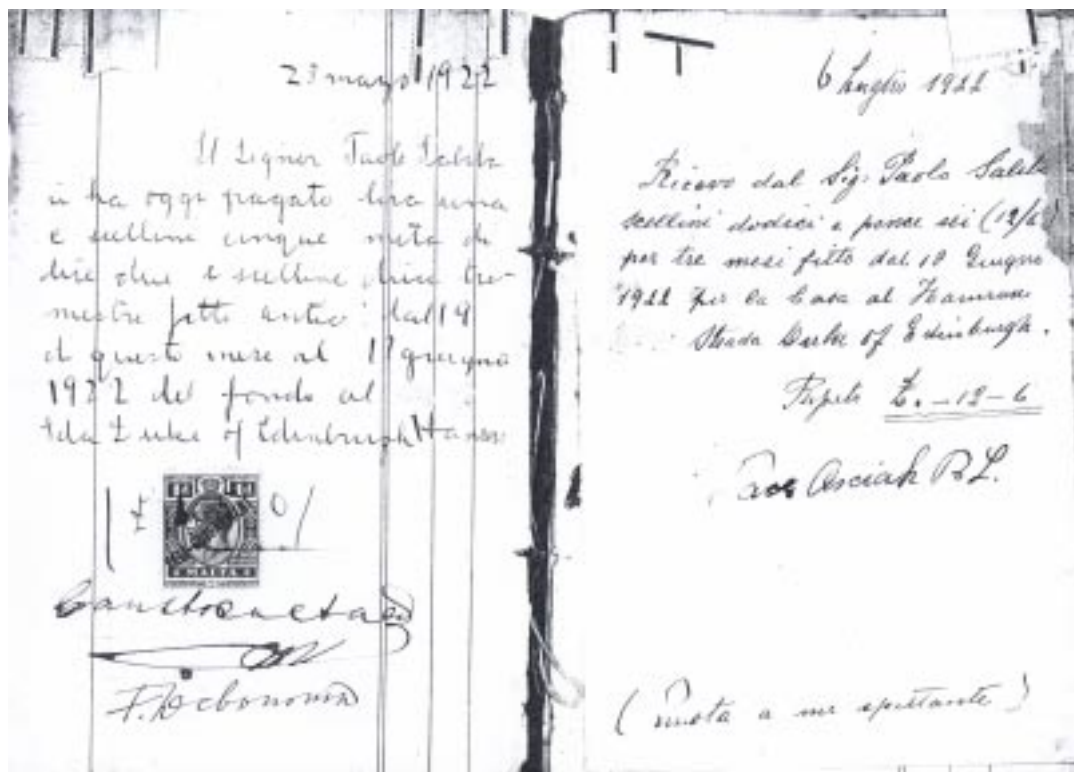 23 marzo 1922
Il Signor Paolo Saliba
ci ha oggi pagato lira una
e scellini cinque metà di
lire due e scellini dieci tre-
mestre fitto antic° dal 19
di questo mese al 18 giugno
1922 del fondo al
Duke of Edinburgh Hamrun
£
MALTA
F. Debono
6 Luglio 1922
Ricevo dal Sig. Paolo Saliba
scellini dodici e pence sei (12/6)
per tre mesi fitto dal 18 Giugno
1922 per la Casa al Hamrun
Strada Duke of Edinburgh.
Ripeto £. – 12 – 6
Asciak B L.
(Quota a me spettante)